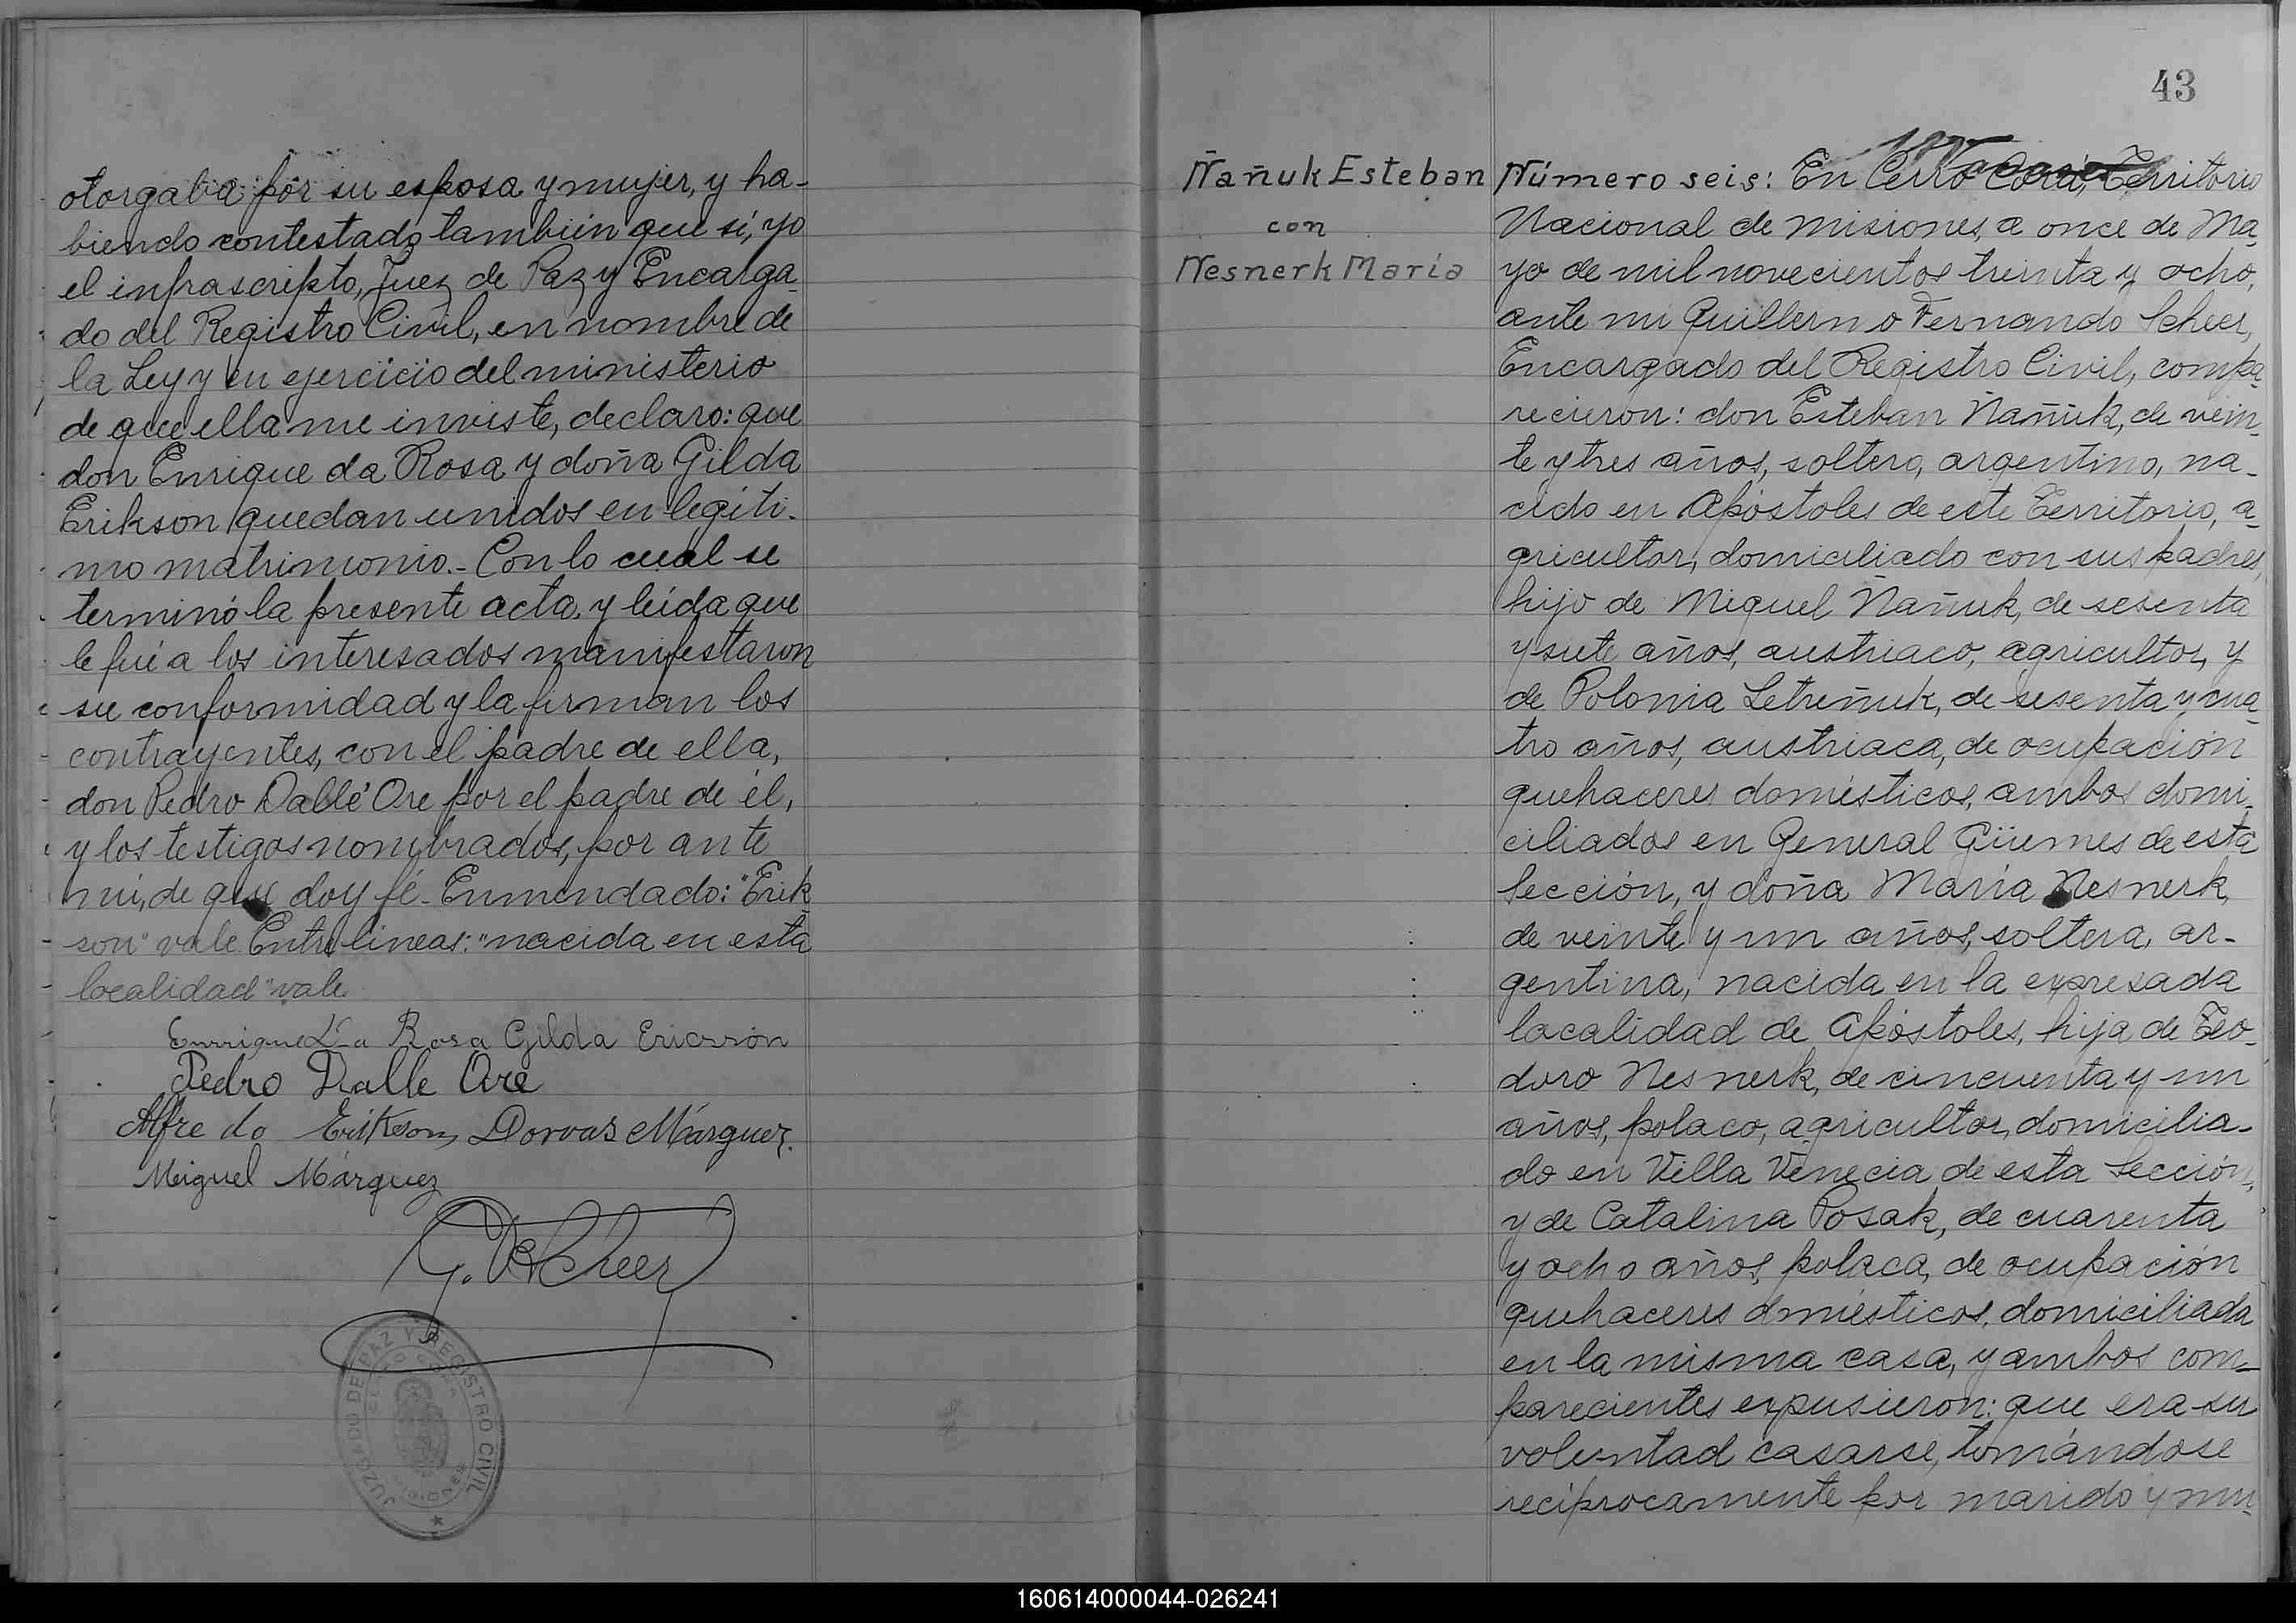 otorgaba por su esposa y mujer, y ha-
biendo contestado también que sí, yo
el infrascripto, Juez de Paz y Encarga-
do del Registro Civil, en nombre de
la Ley y en ejercicio del ministerio
de que ella me inviste, declaro: que
don Enrique da Rosa y doña Gilda
Erikson quedan unidos en legíti-
mo matrimonio.- Con lo cual se
terminó la presente acta, y leída que
le fué a los interesados manifestaron
su conformidad y la firman los
contrayentes, con el padre de ella,
don Pedro Dallé Ore por el padre de él,
y los testigos nombrados, por ante
mi, de que doy fé.- Enmendado: "Erik
son" vale Entre líneas: "nacida en esta
localidad" vale.
Enrrique Da Rosa Gilda Ericssón
Pedro Dalle Ore
Alfredo Erikson Dorvas Márquez.
Miguel Márquez
G. F. Scheer
JUZGADO DE PAZ Y REGISTRO CIVIL
43
Ñañuk Esteban
con
Nesnerk María
Número seis: En Cerro Corá, Territorio
Nacional de Misiones, a once de Ma-
yo de mil novecientos treinta y ocho,
ante mi Guillermo Fernando Scheer,
Encargado del Registro Civil, compa-
recieron: don Esteban Ñañuk, de vein-
te y tres años, soltero, argentino, na-
cido en Apóstoles de este Territorio, a-
gricultor, domiciliado con sus padres,
hijo de Miguel Ñañuk, de sesenta
y siete años, austriaco, agricultor, y
de Polonia Letreñuk, de sesenta y cua-
tro años, austriaca, de ocupación
quehaceres domésticos, ambos domi-
ciliados en General Güemes de esta
Sección, y doña María Nesnerk,
de veinte y un años, soltera, ar-
gentina, nacida en la expresada
localidad de Apóstoles, hija de Teo-
doro Nesnerk, de cincuenta y un
años, polaco, agricultor, domicilia-
do en Villa Venecia de esta Sección,
y de Catalina Posak, de cuarenta
y ocho años, polaca, de ocupación
quehaceres dmésticos, domiciliada
en la misma casa, y ambos com-
parecientes expusieron: que era su
voluntad casarse, tomándose
recíprocamente por marido y mu-
160614000044-026241